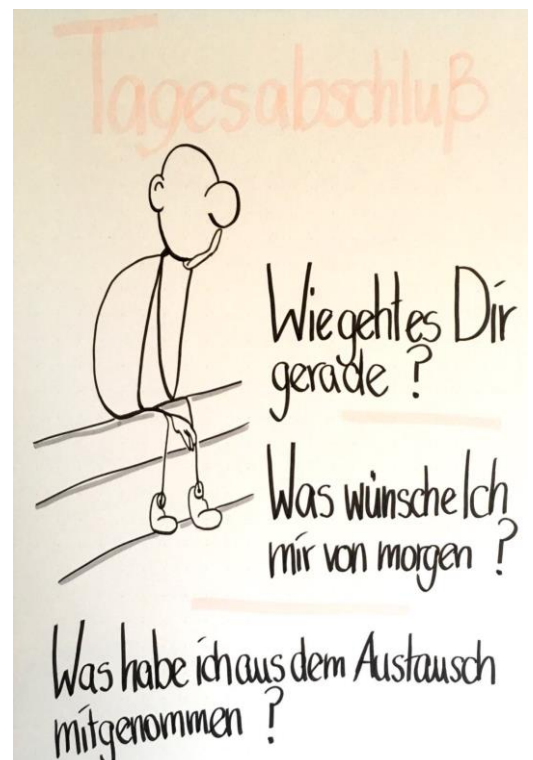 Tagesabschluß
Wie geht es Dir
gerade ?
Was wünsche Ich
mir von morgen ?
Was habe ich aus dem Austausch
mitgenommen ?